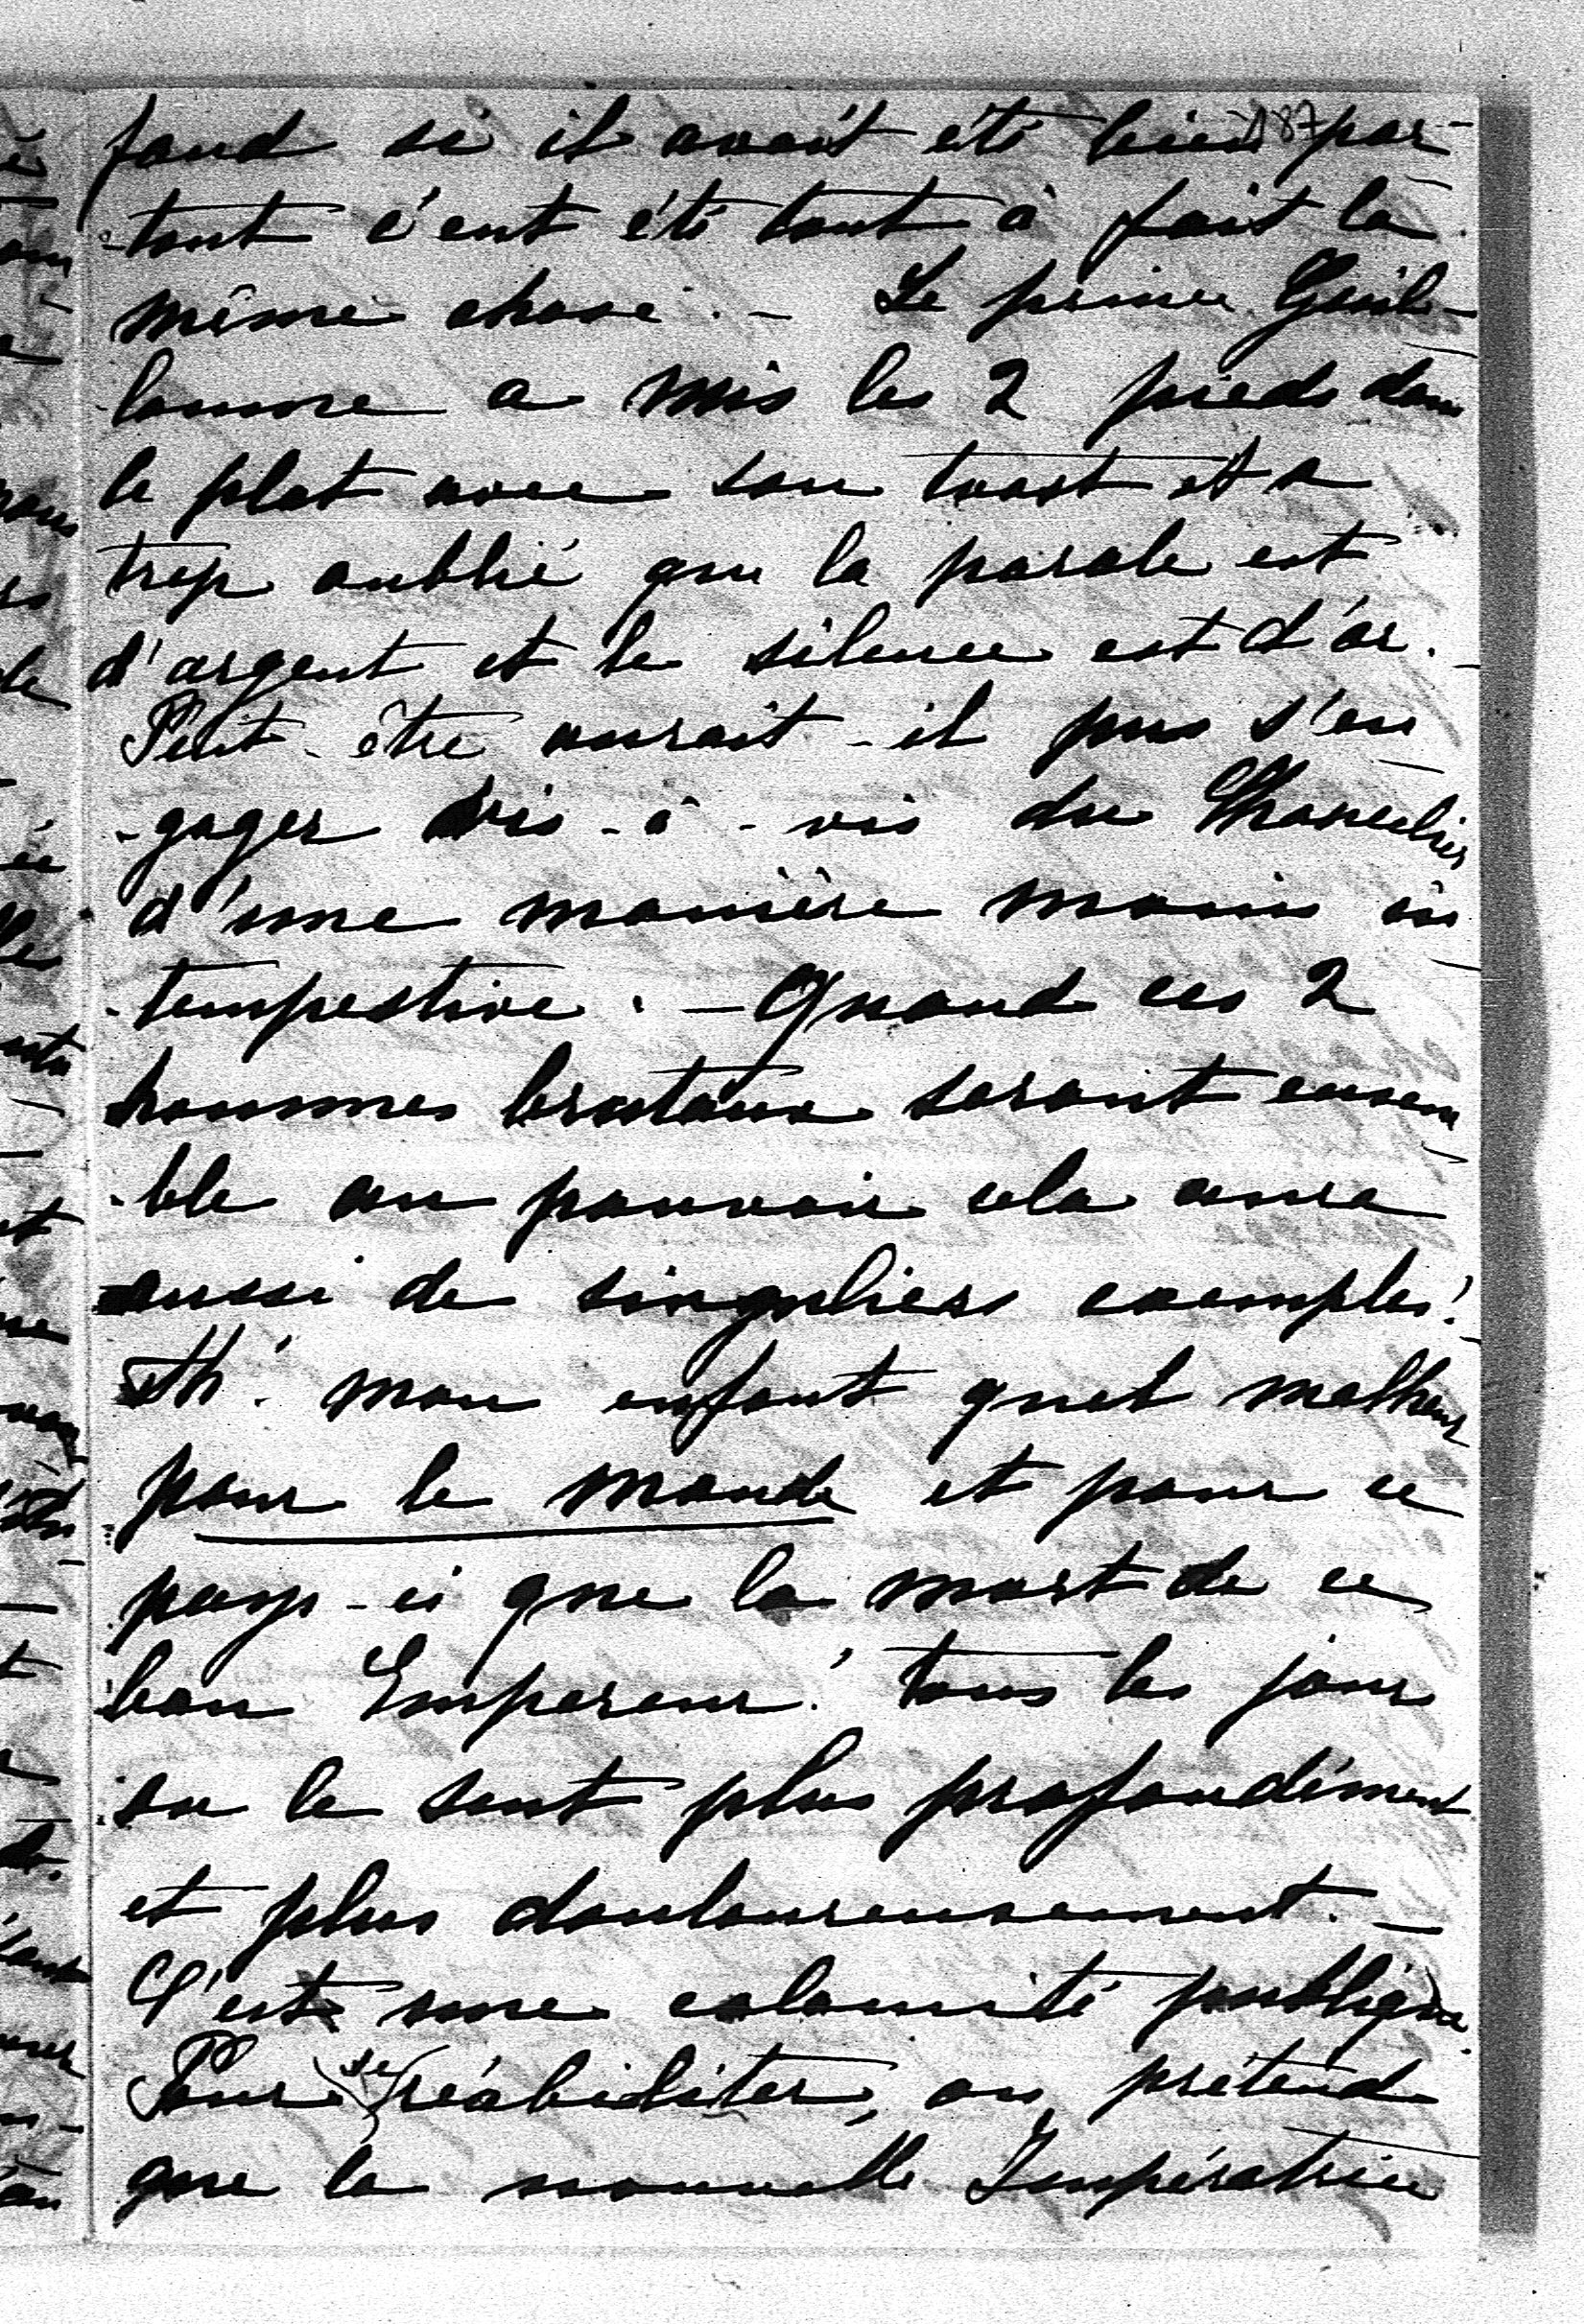 187
fond si il avait été bien par-
-tout c'eut été tout à fait la
même chose. - Le prince Guil-
laume a mis les 2 pieds dans
le plat avec son toast et a
trop oublié que la parole est
d'argent et le silence est d'or. -
Peut-être aurait-il pu s'en
-gager vis-à-vis du Chancelier
d'une manière moins in
-tempestive. - Quand ces 2
hommes brutaux seront ensem
-ble au pouvoir cela aura
aussi de singuliers exemples! -
Ah! mon enfant quel malheur
pour le monde et pour ce
pays-ci que la mort de ce
bon Empereur! tous les jours
on le sent plus profondément
et plus douloureusement. -
C'est une calamité publique.
Pour se réabiliter, on prétend
que la nouvelle Impératrice